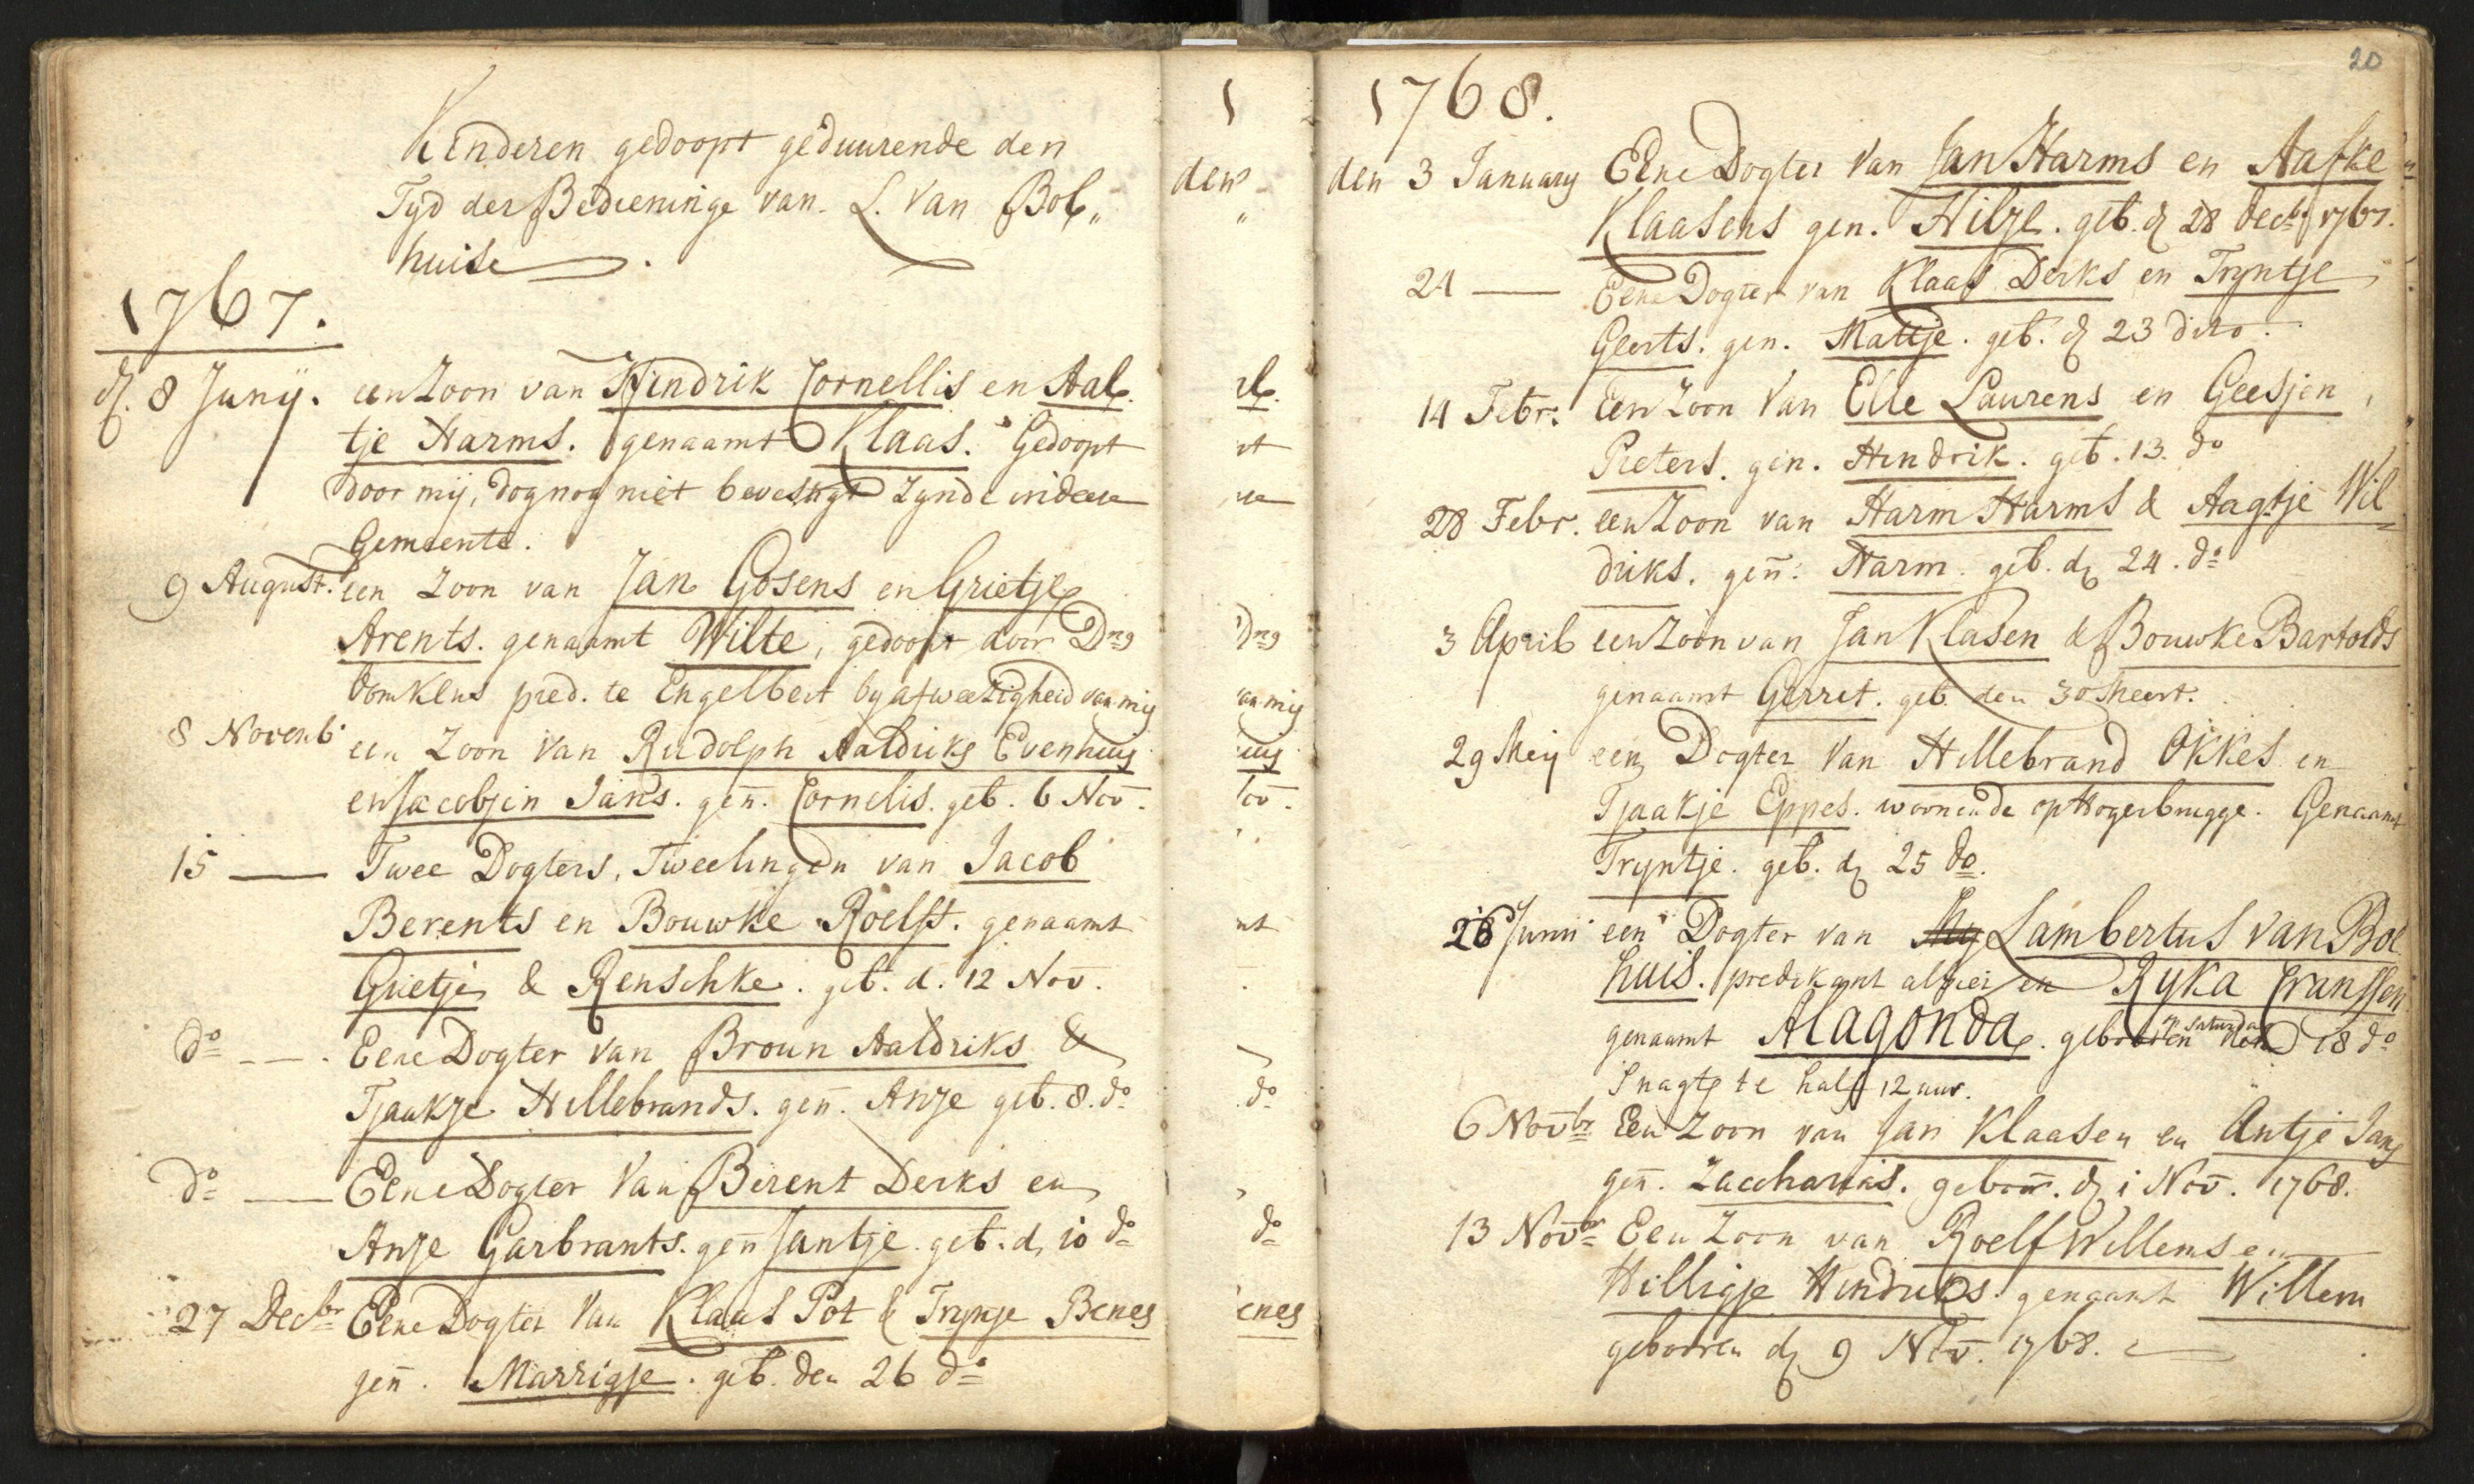 Kinderen gedoopt geduurende den
Tyd der Bedieninge van L. van Bol„
huise.
1767.
d. 8 Junij. een Zoon van Hindrik Cornellis en Aal
tje Harms. genaamt Klaas. Gedoopt
door mij, dog nog niet bevestigt zynde in dese
Gemeente.
9 August. een Zoon van Jan Gosens en Grietje
Arents. genaamt Wilte, gedoopt door Dns
Domkens pred. te Engelbert by afweezigheid van mij
8 Novemb. een Zoon van Rudolph Aaldriks Evenhuis
en Jacobjen Jans. gen. Cornelis. geb. 6 Nov.
15 — Twee Dogters, Tweelingen van Jacob
Berents en Bouwke Roelfs. genaamt
Grietje & Renschke. geb. d. 12 Nov.
do — Eene Dogter van Broun Aaldriks &
Tjaakje Hillebrands. gen. Anje geb. 8. do
do — Eene Dogter van Berent Derks en
Anje Garbrants. gen Jantje. geb. d. 10 do
27 Decbr Eene Dogter van Klaas Pot & Trynje Benes
gen. Marrigje. geb. den 26 do
20
1768.
den 3 January Eene Dogter van Jan Harms en Aafke
Klaasens gen. Hilje. geb. d 28 decbr 1767.
24 — Eene Dogter van Klaas Derks en Tryntje
Geerts. gen. Mattje. geb. d 23 dito.
14 Febr. Een Zoon van Elle Laurens en Geesjen
Pieters. gen. Hendrik. geb. 13. do
28 Febr. een Zoon van Harm Harms & Aagtje Wil
driks. gen. Harm. geb. d 24. do
3 April een Zoon van Jan Klasen & Bouwke Bartolds
genaamt Gerret. geb. den 30 Meert.
29 Meij een Dogter van Hillebrand Okkes en
Tjaakje Eppes. woonende op Hogerbrugge. Genaamt
Tryntje. geb. d 25 do.
26 Junii een Dogter van Mij Lambertus van Bol
huis. predikant alhier en Ryka Franssen
genaamt Alagonda. gebooren op Saturdag den 18 do
snagts te half 12 uur.
6 Novbr Een Zoon van Jan Klaasen en Antje Jans
gen. Zaccharias. geboor. d 1 Nov. 1768.
13 Novbr Een Zoon van Roelf Willems en
Willigje Hindriks. genaamt Willem
gebooren d 9 Nov. 1768.